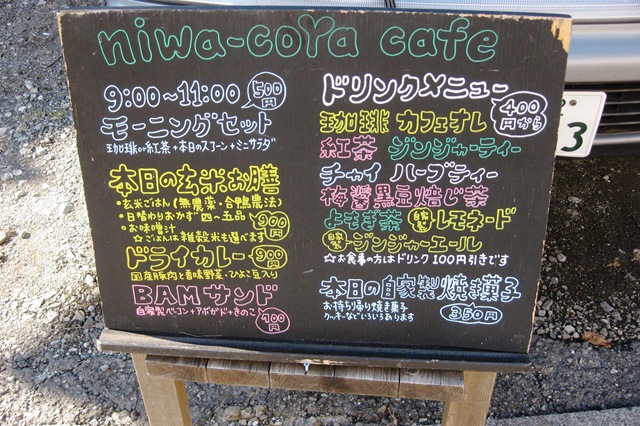 niwa-coYa cafe
9:00～11:00 500円
モーニングセット
珈琲or紅茶+本日のスコーン+ミニサラダ
本日の玄米お膳
・玄米ごはん(無農薬・合鴨農法)
・日替わりおかず 四～五品ぐ
・お味噌汁 900円
☆ごはんは雑穀米も選べます
ドライカレー 900円
国産豚肉と香味野菜・ひよこ豆入り
BAMサンド
自家製ベーコン+アボガド+きのこ 700円
ドリンクメニュー
400円から
珈琲 カフェオレ
紅茶 ジンジャーティー
チャイ ハーブティー
梅醤黒豆焙じ茶
よもぎ茶 自家製レモネード
自家製ジンジャーエール
☆お食事の方はドリンク100円引きです
本日の自家製焼き菓子
お持ち帰り焼き菓子
クッキーなどいろいろあります 350円
3